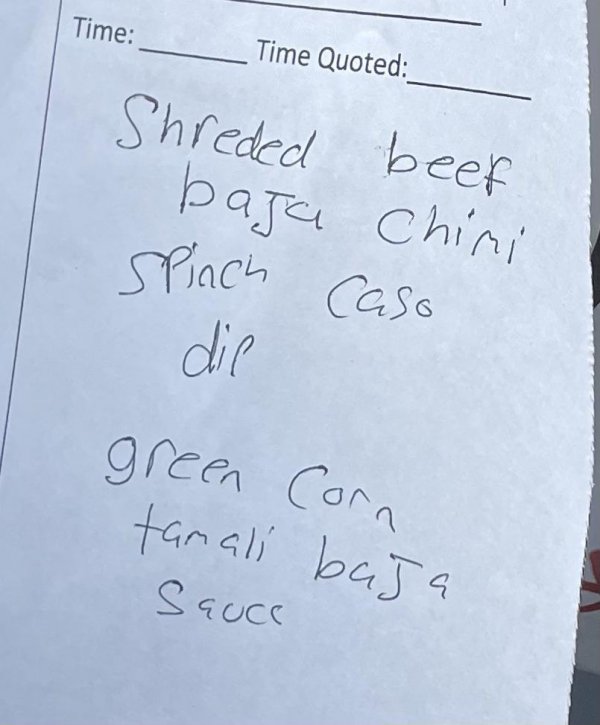 Time: Time Quoted:
Shreded beef
baja Chimi
Spinch Caso
dip
green Corn
tamali baja
Sauce